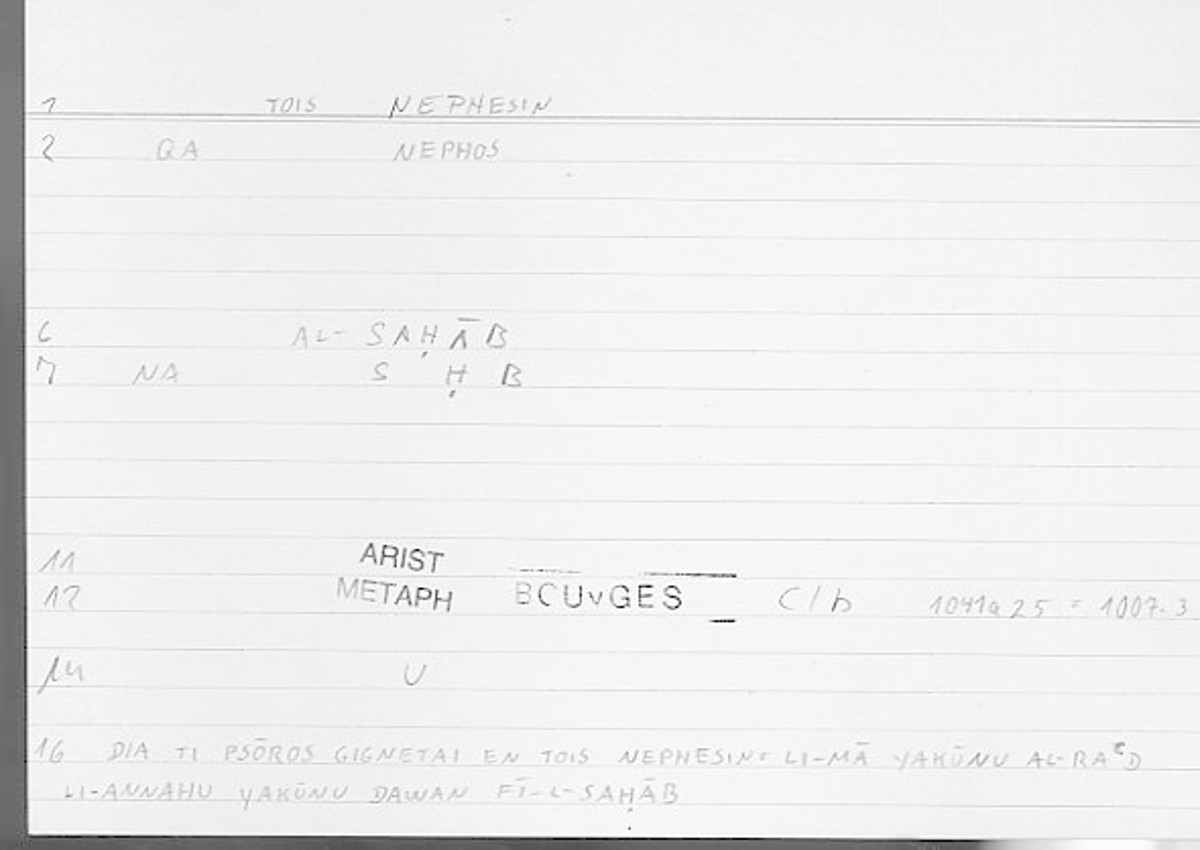 1 TOIS NEPHESIN
2 QA NEPHOS
6 AL- SAḤĀB
7 NA S Ḥ B
11 ARIST
12 METAPH BCUvGES C/b 1041a25 = 1007.3
14 U
16 DIA TI PSŌROS GIGNETAI EN TOIS NEPHESIN= LI-MĀ YAKŪNU AL-RAᶜD
LI-ANNAHU YAKŪNU DAWAN FĪ-L-SAḤĀB